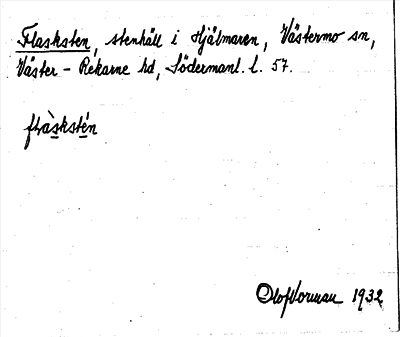 Flasksten, stenhäll i Hjälmaren, Västermo sn,
Väster-Rekarne hd, Södermanl. l. 57.
flàskstén
Olof Vorman 1932